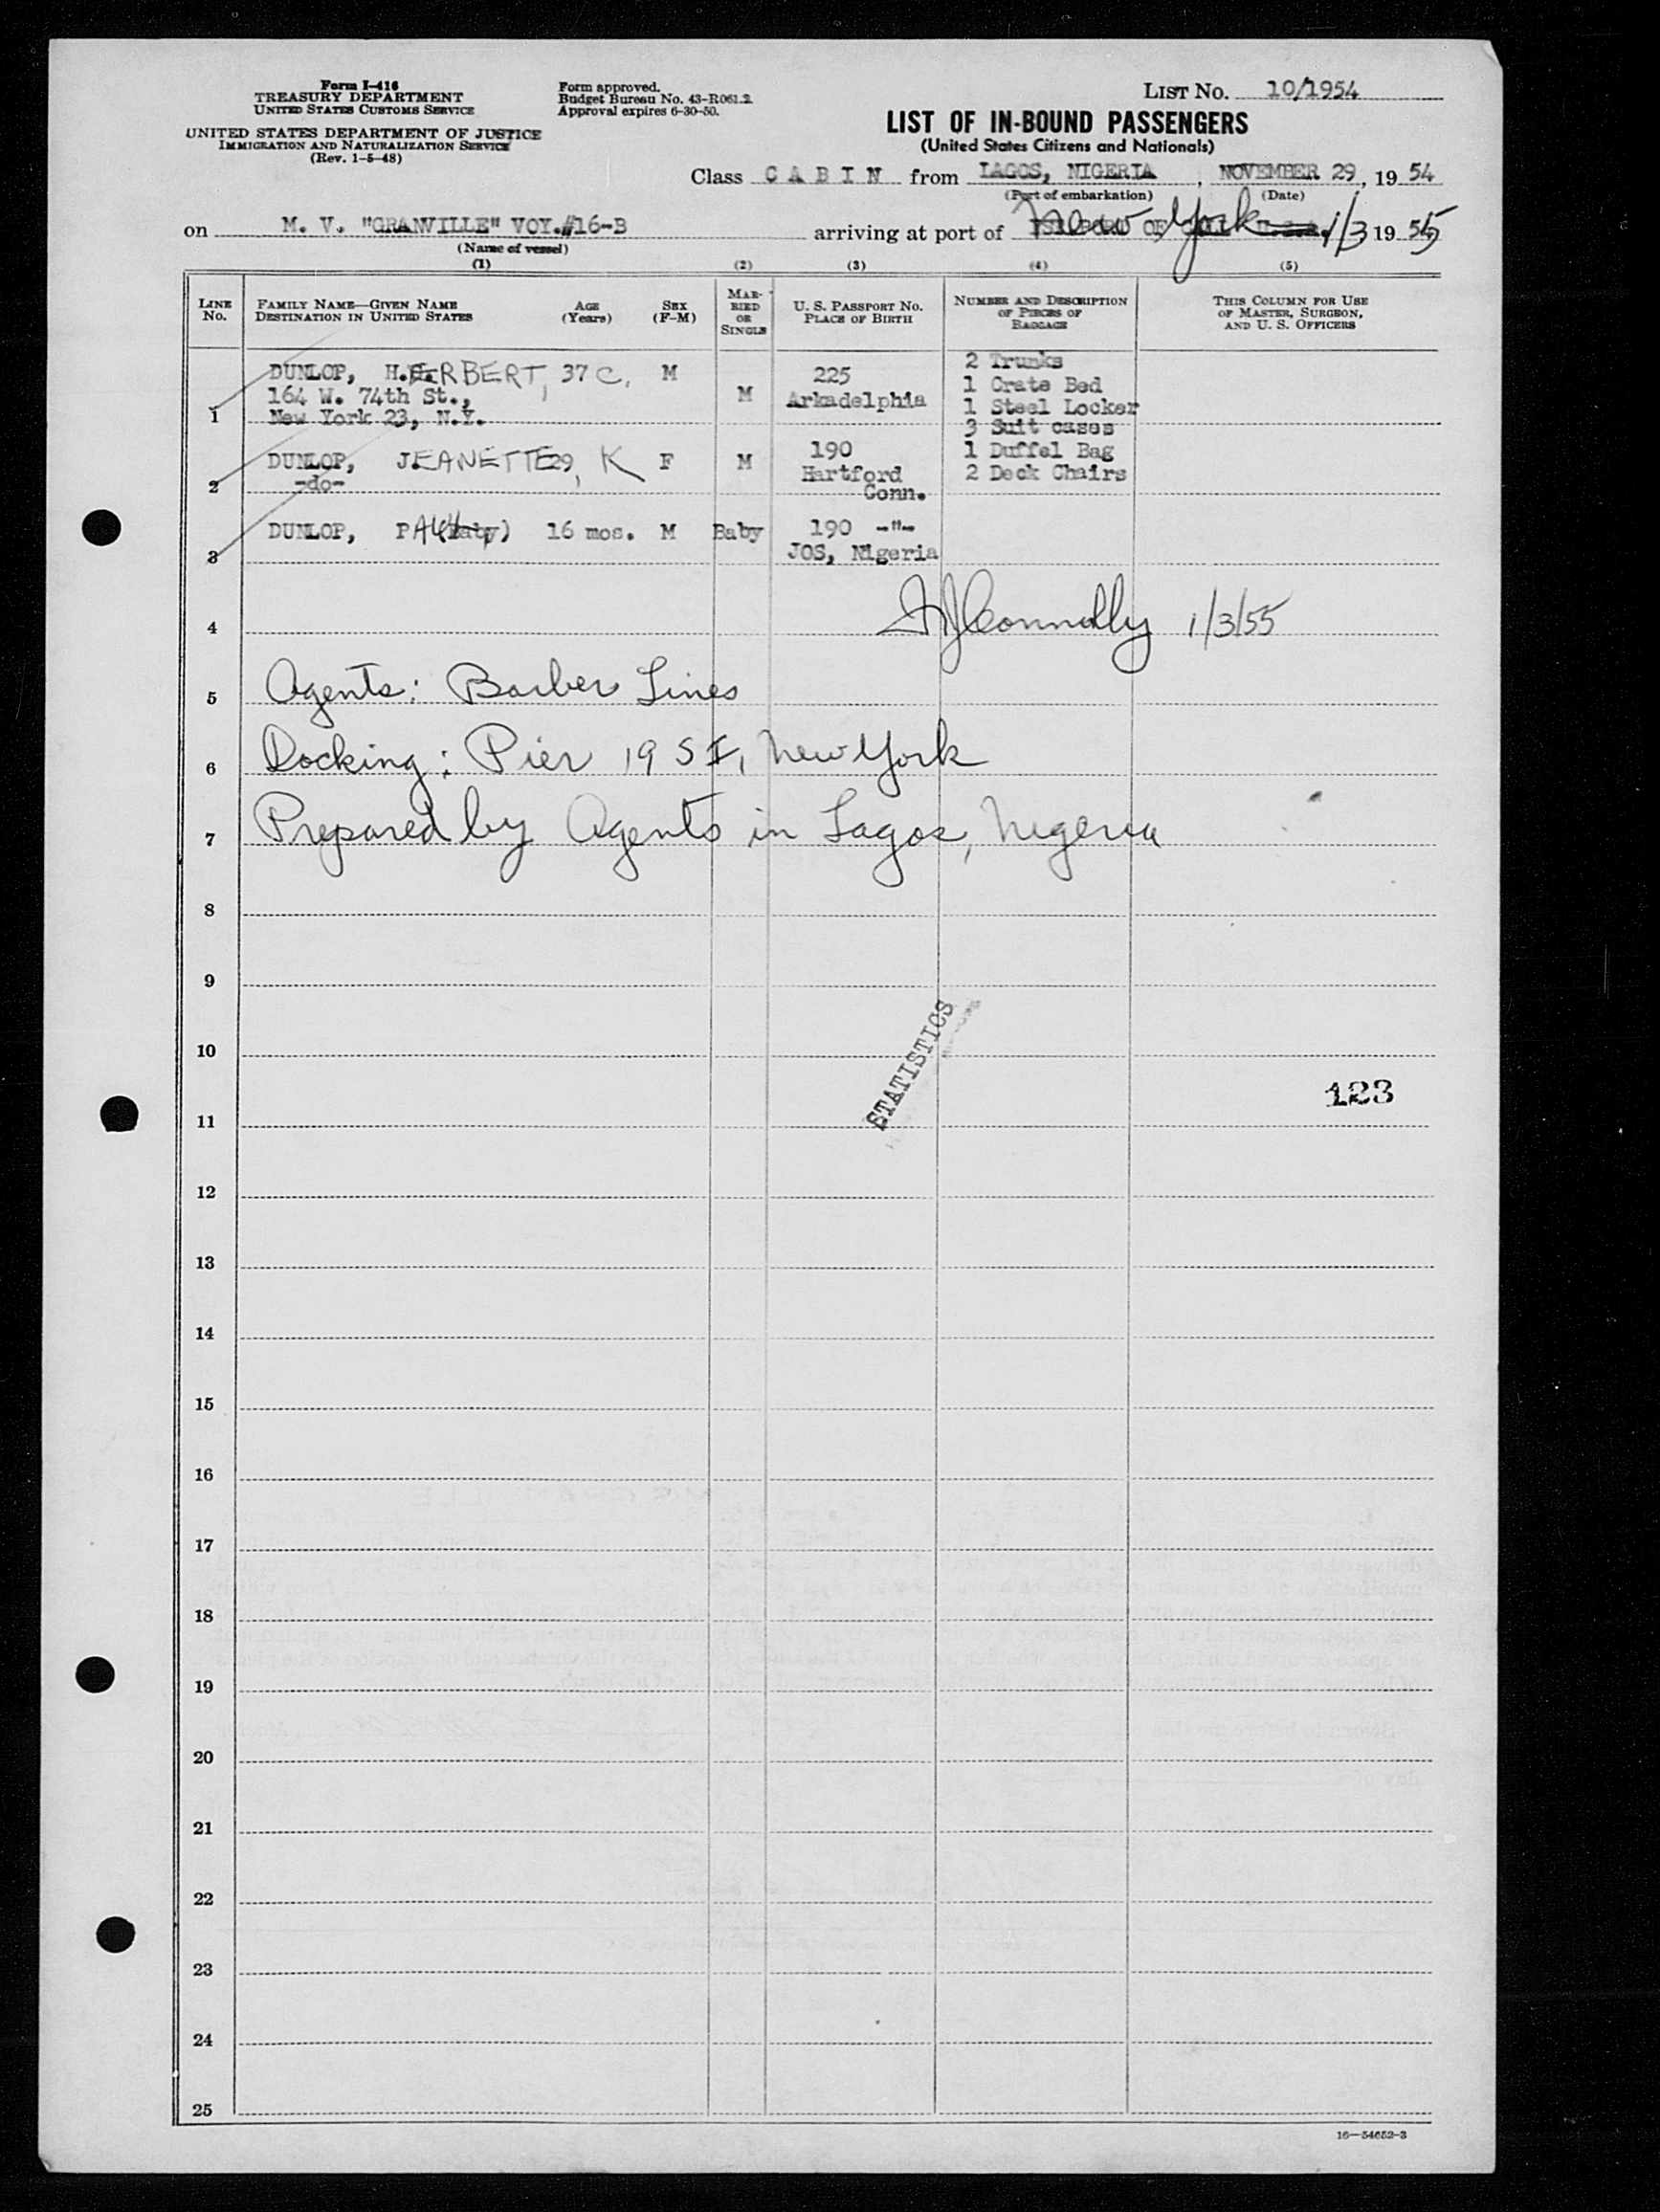 Form I-416
TREASURY DEPARTMENT
UNITED STATES CUSTOMS SERVICE
UNITED STATES DEPARTMENT OF JUSTICE
IMMIGRATION AND NATURALIZATION SERVICE
(Rev. 1-5-48)
Form approved.
Budget Bureau No. 43-R061.2.
Approval expires 6-30-50.
LIST No. 10/1954
LIST OF IN-BOUND PASSENGERS
(United States Citizens and Nationals)
Class C A B I N from LAGOS, NIGERIA, NOVEMBER 29, 19 54
(Port of embarkation) (Date)
on M. V. "GRANVILLE" VOY.#16-B arriving at port of New York 1/3 19 55
(Name of vessel)
(1) (2) (3) (4) (5)
LINE No. FAMILY NAME—GIVEN NAME DESTINATION IN UNITED STATES AGE (Years) SEX (F-M) MARRIED OR SINGLE U. S. PASSPORT No. PLACE OF BIRTH NUMBER AND DESCRIPTION OF PIECES OF BAGGAGE THIS COLUMN FOR USE OF MASTER, SURGEON, AND U. S. OFFICERS
1 DUNLOP, H. HERBERT, 37 C, M M 225 Arkadelphia
164 W. 74th St.,
New York 23, N.Y.
2 Trunks
1 Crate Bed
1 Steel Locker
3 Suit cases
1 Duffel Bag
2 Deck Chairs
2 DUNLOP, JEANETTE 29, K F M 190 Hartford Conn.
-do-
3 DUNLOP, PAUL (Baby) 16 mos. M Baby 190 -"- JOS, Nigeria
4 Connolly 1/3/55
5 Agents: Barber Lines
6 Docking: Pier 19 SI, New York
7 Prepared by Agents in Lagos, Nigeria
8
9
10
STATISTICS
123
11
12
13
14
15
16
17
18
19
20
21
22
23
24
25
16—54652-3